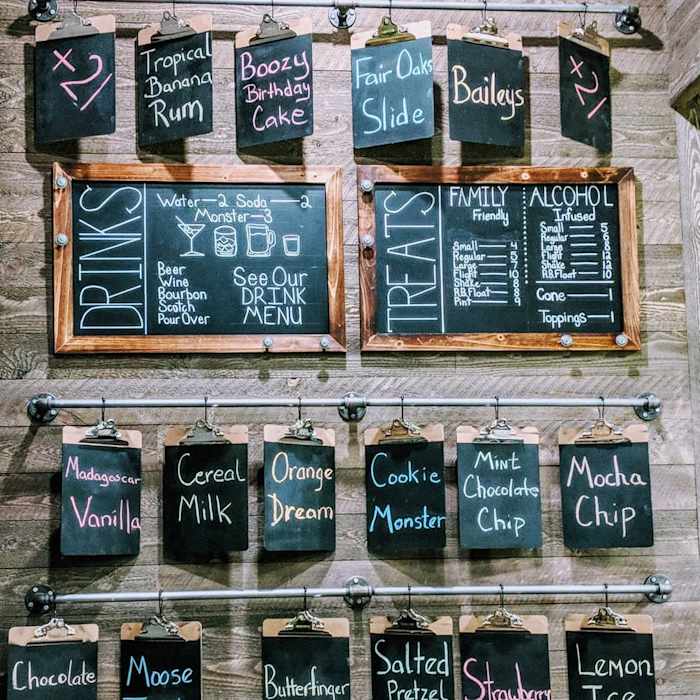 x2!
Tropical
Banana
Rum
Boozy
Birthday
Cake
Fair Oaks
Slide
Baileys
x2!
DRINKS
Water—2 Soda—2
Monster—3
Beer
Wine
Bourbon
Scotch
Pour Over
See Our
DRINK
MENU
TREATS
FAMILY
Friendly
Small—4
Regular—5
Large—7
Flight—10
Shake—8
R.B. Float—8
Pint—9
ALCOHOL
Infused
Small—5
Regular—6
Large—8
Flight—12
Shake—12
R.B. Float—10
Cone—1
Toppings—1
Madagascar
Vanilla
Cereal
Milk
Orange
Dream
Cookie
Monster
Mint
Chocolate
Chip
Mocha
Chip
Chocolate
Moose
Butterfinger
Salted
Pretzel
Strawberry
Lemon